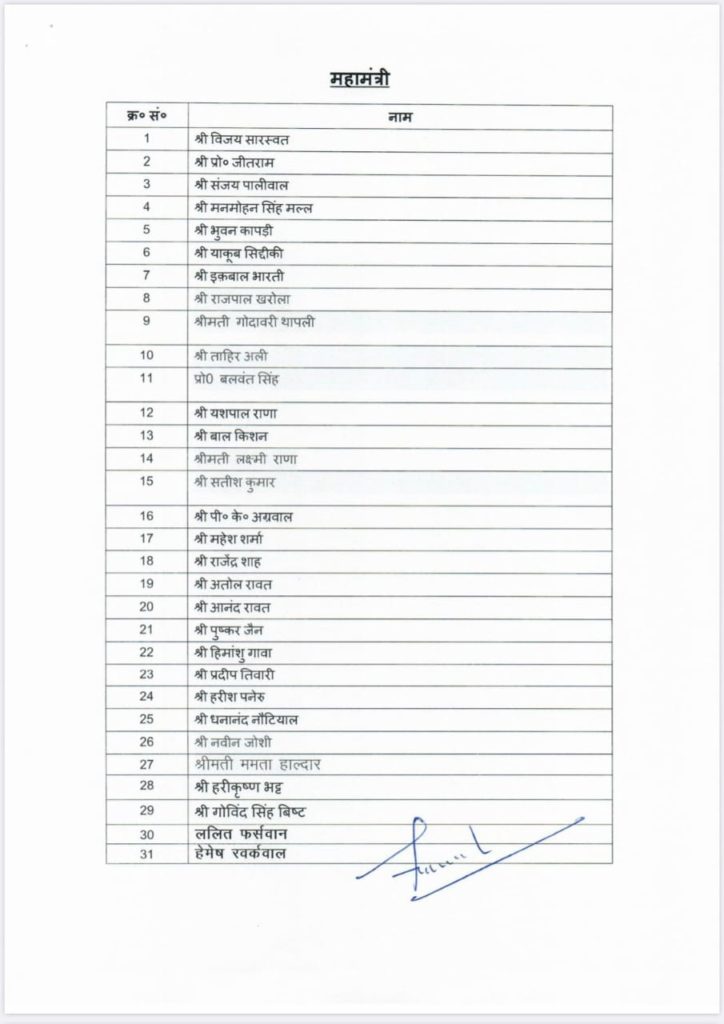 महामंत्री
क्र० सं० नाम
1 श्री विजय सारस्वत
2 श्री प्रो० जीतराम
3 श्री संजय पालीवाल
4 श्री मनमोहन सिंह मल्ल
5 श्री भुवन कापड़ी
6 श्री याकूब सिद्दीकी
7 श्री इक़बाल भारती
8 श्री राजपाल खरोला
9 श्रीमती गोदावरी थापली
10 श्री ताहिर अली
11 प्रो0 बलवंत सिंह
12 श्री यशपाल राणा
13 श्री बाल किशन
14 श्रीमती लक्ष्मी राणा
15 श्री सतीश कुमार
16 श्री पी० के० अग्रवाल
17 श्री महेश शर्मा
18 श्री राजेंद्र शाह
19 श्री अतोल रावत
20 श्री आनंद रावत
21 श्री पुष्कर जैन
22 श्री हिमांशु गावा
23 श्री प्रदीप तिवारी
24 श्री हरीश पनेरु
25 श्री धनानंद नौटियाल
26 श्री नवीन जोशी
27 श्रीमती ममता हाल्दार
28 श्री हरीकृष्ण भट्ट
29 श्री गोविंद सिंह बिष्ट
30 ललित फर्सवान
31 हेमेष खर्कवाल